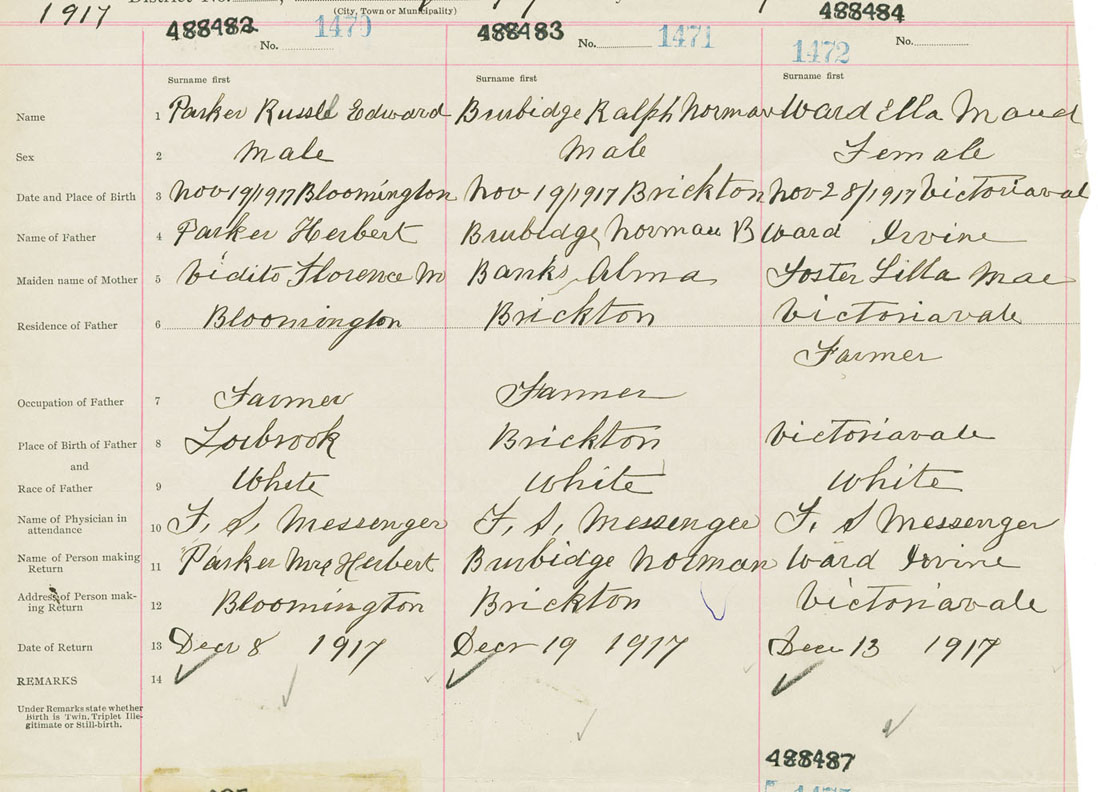 1917 District No.
(City, Town or Municipality)
488482 488483 488484
No. 1470 No. 1471 No. 1472
Surname first Surname first Surname first
Name 1 Parker Russell Edward Burbidge Ralph Norman Ward Ella Maud
Sex 2 Male Male Female
Date and Place of Birth 3 Nov 19/1917 Bloomington Nov 19/1917 Brickton Nov 28/1917 Victoriaval
Name of Father 4 Parker Herbert Burbidge Norman B Ward Irvine
Maiden name of Mother 5 Vidito Florence M Banks Alma Foster Lilla Mae
Residence of Father 6 Bloomington Brickton Victoriavale
Farmer
Occupation of Father 7 Farmer Farmer
Place of Birth of Father 8 Torbrook Brickton Victoriavale
and
Race of Father 9 White White White
Name of Physician in attendance 10 F. S. Messenger F. S. Messenger F. S Messenger
Name of Person making Return 11 Parker Mrs Herbert Burbidge Norman Ward Irvine
Address of Person mak-ing Return 12 Bloomington Brickton Victoriavale
Date of Return 13 Decr 8 1917 Decr 19 1917 Dec 13 1917
REMARKS 14
Under Remarks state whether
Birth is Twin, Triplet Ille-
gitimate or Still-birth.
488487